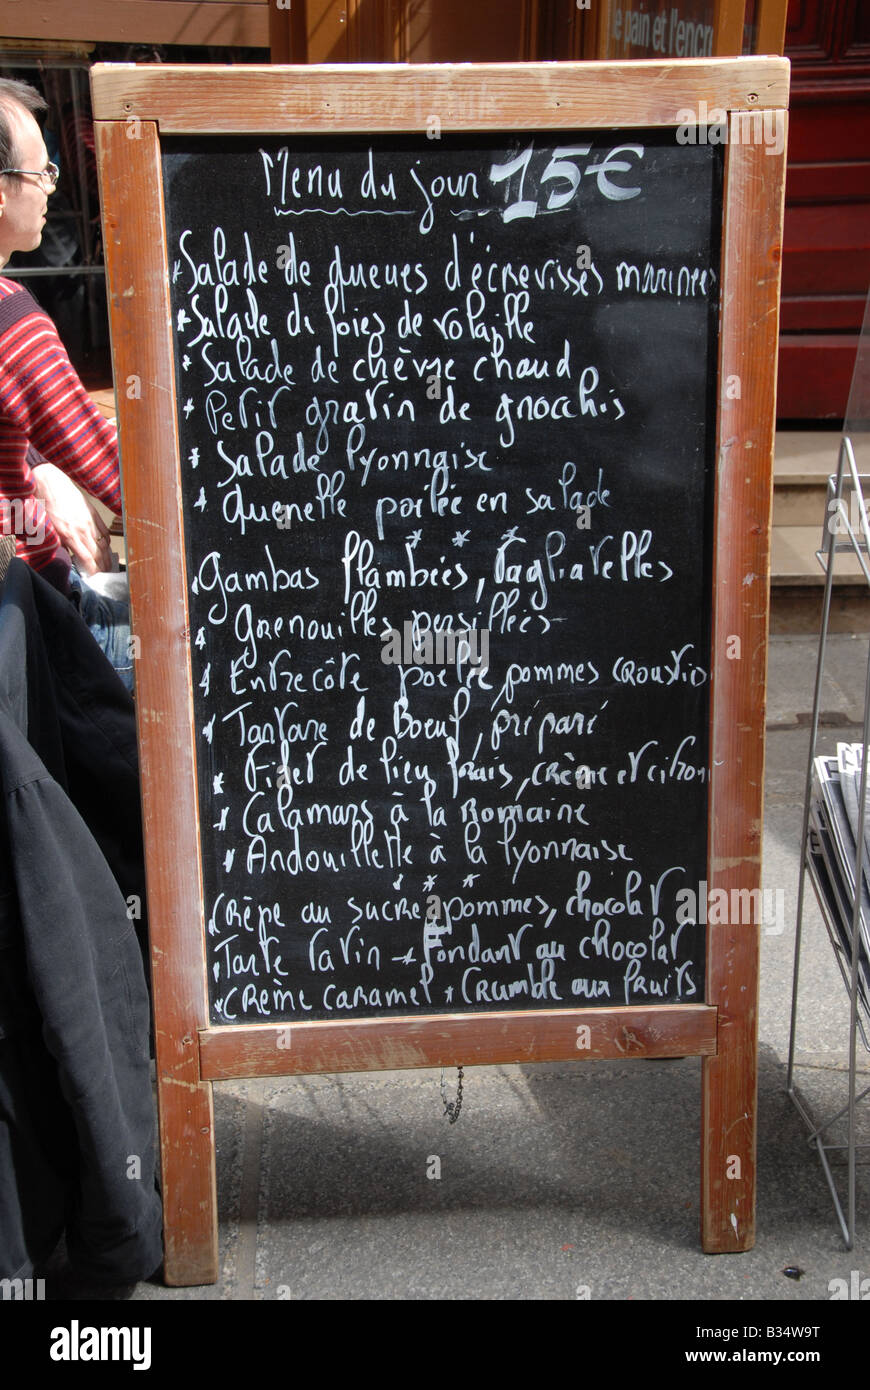 le pain et l'encr
Menu du jour 15€
* Salade de queues d'écrevisses marinees
* Salade de foies de volaille
* Salade de chèvre chaud
* Petit gratin de gnocchis
* Salade lyonnaise
* Quenelle poêlée en salade
* * *
* Gambas flambées, Tagliatelles
* Grenouilles persillées
* Entrecôte poêlée, pommes croustid
* Tartare de Boeuf, préparé
* Filet de lieu frais, crème et citron
* Calamars à la Romaine
* Andouillette à la lyonnaise
* * *
* Crèpe au sucre, pommes, chocolat
* Tarte tatin * Fondant au chocolat
* Crème caramel * Crumble aux fruits
alamy
Image ID: B34W9T
www.alamy.com